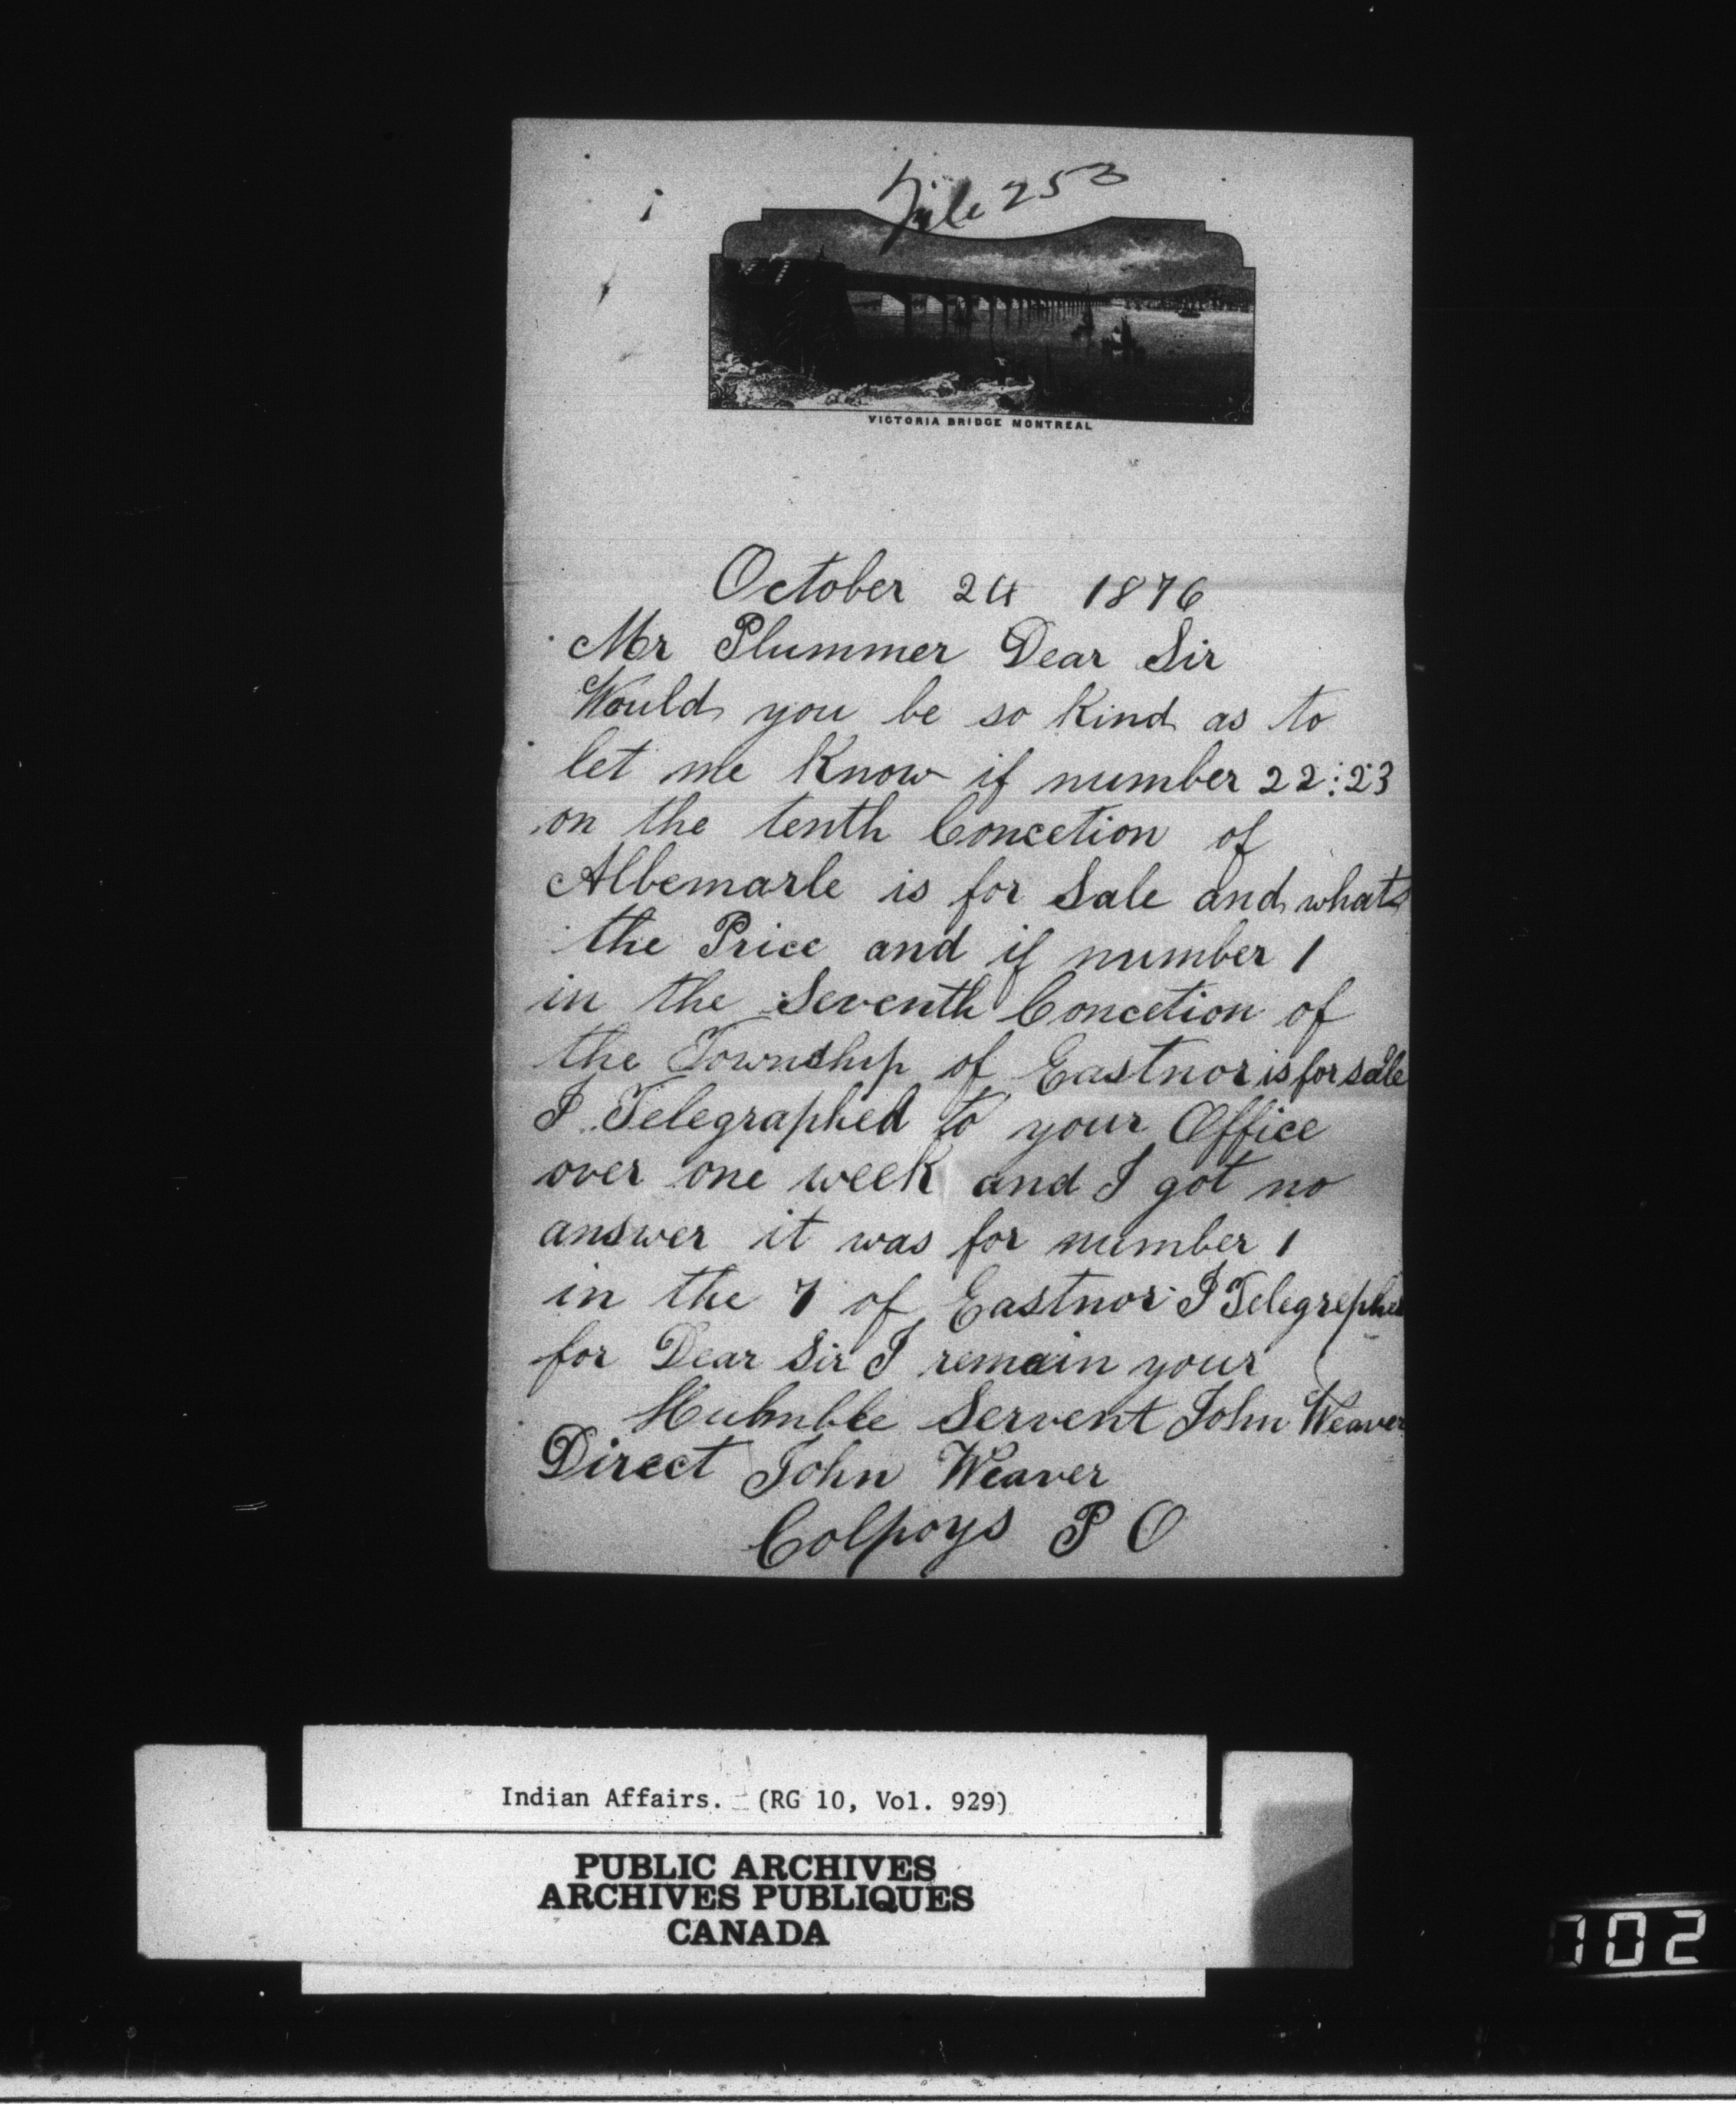 File 253
VICTORIA BRIDGE MONTREAL
October 24 1876
Mr Plummer Dear Sir
Would you be so Kind as to
let me Know if number 22:23
on the tenth Concetion of
Albemarle is for Sale and whats
the Price and if number 1
in the Seventh Concetion of
the Township of Eastnor is for sale
I Telegraphed to your Office
over one week and I got no
answer it was for number 1
in the 7 of Eastnor I Telegrephed
for Dear Sir I remain your
Humbble Servent John Weaver
Direct John Weaver
Colpoys P O
Indian Affairs. (RG 10, Vol. 929)
PUBLIC ARCHIVES
ARCHIVES PUBLIQUES
CANADA
702